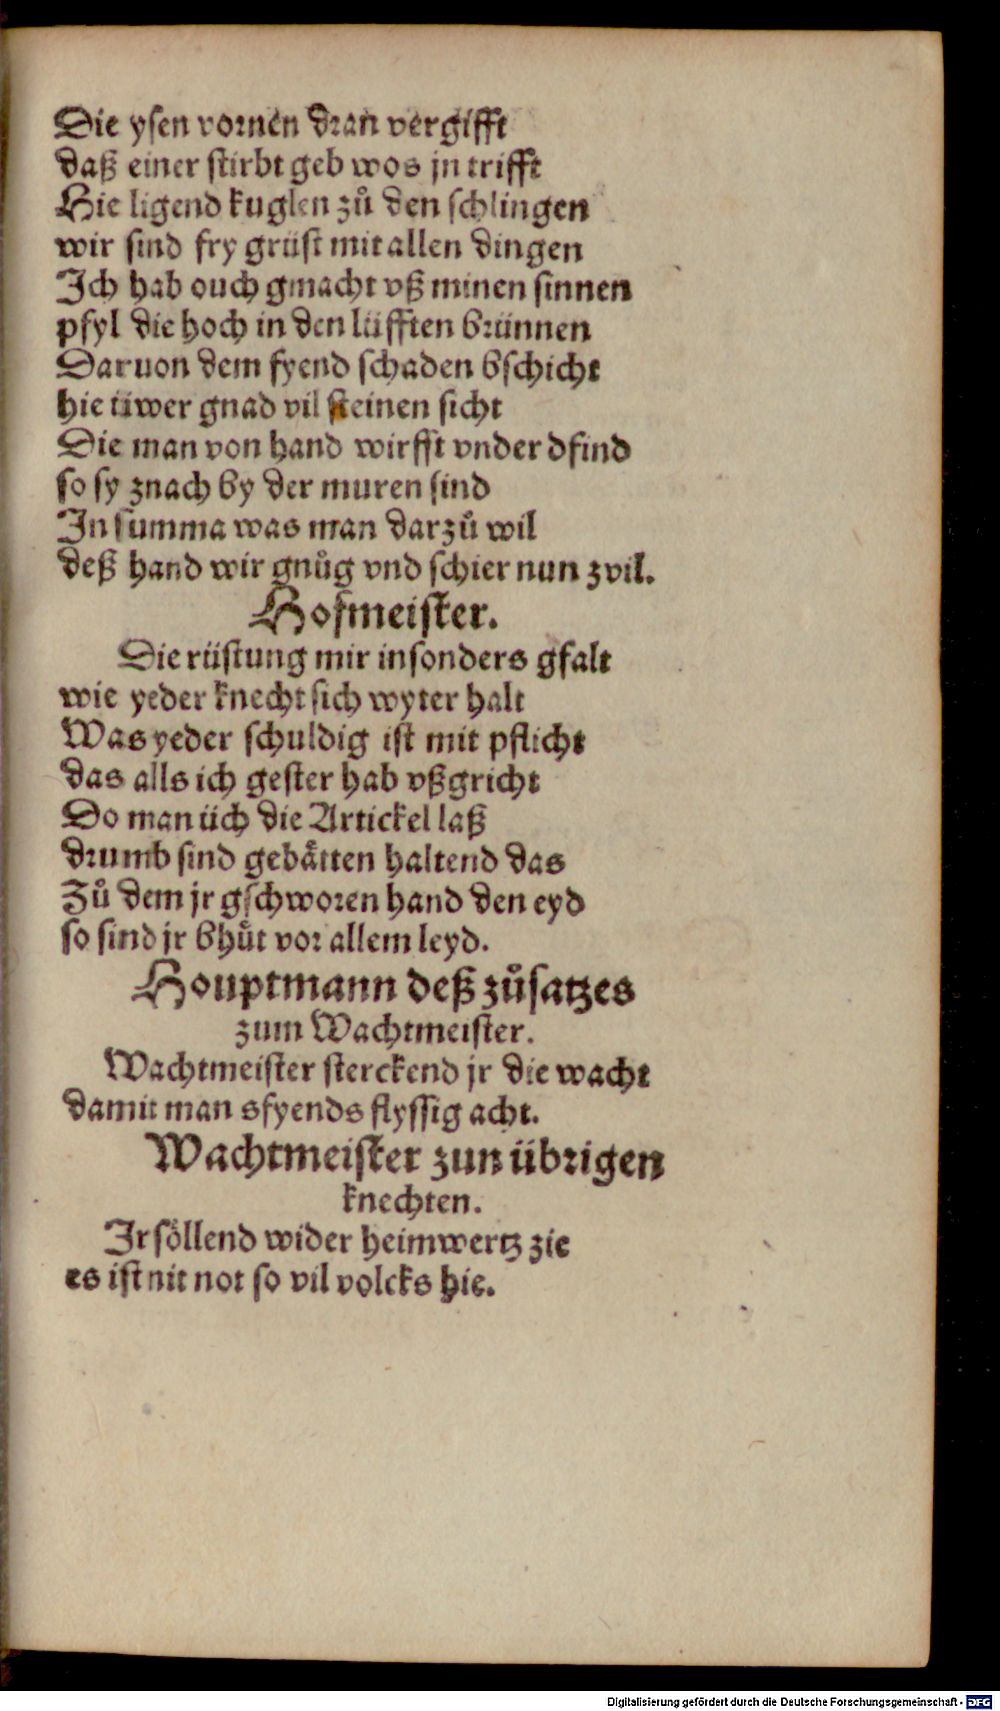 Die ysen vornen dran vergifft
daß einer stirbt geb wos jn trifft
Hie ligend kuglen zů den schlingen
wir sind fry grüst mit allen dingen
Ich hab ouch gmacht vß minen sinnen
pfyl die hoch in den lüfften brünnen
Daruon dem fyend schaden bschicht
hie üwer gnad vil steinen sicht
Die man von hand wirfft vnder dfind
so sy znach by der muren sind
In summa was man darzů wil
deß hand wir gnůg vnd schier nun zvil.
Hofmeister.
Die rüstung mir insonders gfalt
wie yeder knecht sich wyter halt
Was yeder schuldig ist mit pflicht
das alls ich gester hab vßgricht
Do man üch die Artickel laß
drumb sind gebätten haltend das
Zů dem jr gschworen hand den eyd
so sind jr bhüt vor allem leyd.
Houptmann deß zůsatzes
zum Wachtmeister.
Wachtmeister sterckend jr die wacht
damit man sfyends flyssig acht.
Wachtmeister zun übrigen
knechten.
Ir söllend wider heimwertz zie
es ist nit not so vil volcks hie.
Digitalisierung gefördert durch die Deutsche Forschungsgemeinschaft - DFG